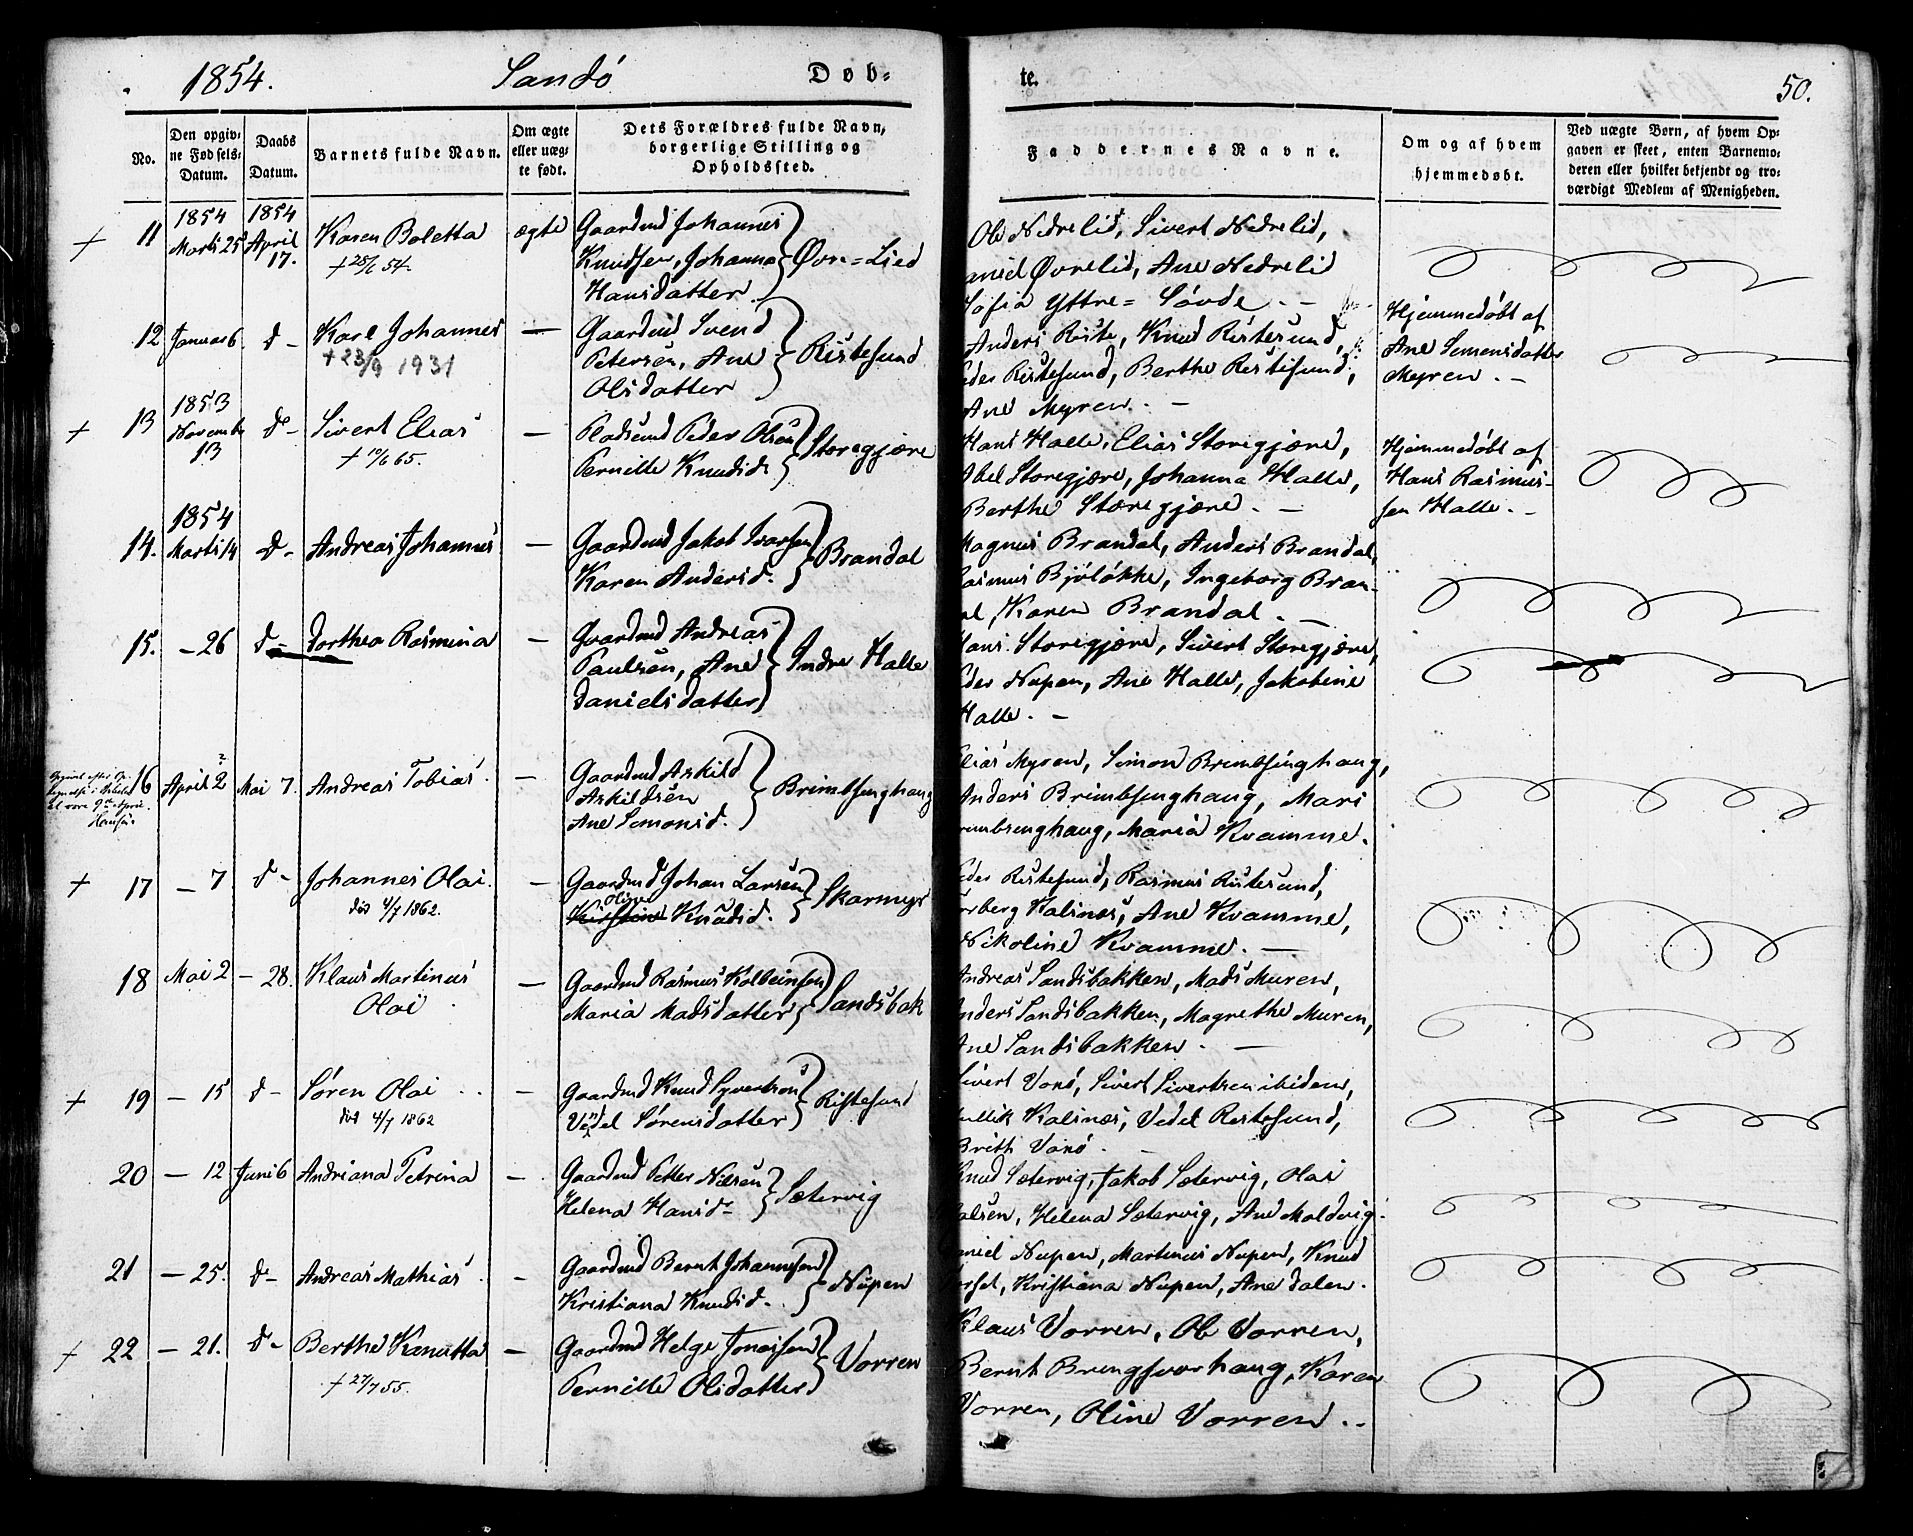 1854.
Sandö
Døb-
te.
50.
No.
Den opgiv-
ne Fødsels-
Datum.
Daabs
Datum.
Barnets fulde Navn.
Om ægte
eller uæg-
te født.
Dets Forældres fulde Navn,
borgerlige Stilling og
Opholdssted.
Faddernes Navne.
Om og af hvem
hjemmedøbt.
Ved uægte Børn, af hvem Op-
gaven er skeet, enten Barnemo-
deren eller hvilket bekjendt og tro-
værdigt Medlem af Menigheden.
+ 11 1854 Marts 25 1854 April 17. Karen Boletta ægte Gaardmd Johannes
+ 25/6 54. Knudsen, Johanna Øvre=Lied
Hansdatter.
Ole Nedrelid, Sivert Nedrelid,
Øvrelid, Ane Nedrelid
Sofia Yttre= Søvde. -
12 Januar 6 d- Karl Johannes — Gaardmd Svend
+ 23/9 1931 Petersen, Ane Ristesund
Olsdatter
Anders Riste, Knud Ristesund,
Peder Ristesund, Berthe Ristesund,
Ane Myren. -
Hjemmedöbt af
Ane Semensdatter
Myren. -
+ 13 1853 Novembr 13 do- Sivert Elias — Pladsmd Peder Olsen
+ 19/6 65. Pernille Knudsd. Storegjære
Hans Halle, Elias Storegjære,
Abel Storegjære, Johanna Halle,
Berthe Storegjære. -
Hjemmedöbt af
Hans Rasmus-
sen Halle. -
14. 1854 Marts 14 d- Andreas Johannes — Gaardmd Jakob Ivarsen
Karen Andersd. Brandal
Magnus Brandal, Anders Brandal,
Rasmus Bjöløkke, Ingeborg Bran-
dal, Karen Brandal. -
15. - 26 d- Dorthea Rasmina — Gaardmd Andreas
Paulsen, Ane Indre Halle
Danielsdatter
Hans Storegjære, Sivert Storegjære,
Peder Nupen, Ane Halle, Jakobine
Halle. -
16 April 2 Mai 7. Andreas Tobias — Gaardmd Askild
Askildsen Brimbsunghaug
Ane Simonsd.
Elias Myren, Simon Brimbsinghaug,
Anders Brimbsunghaug, Mari
Brimbsunghaug, Maria Kvamme.
+ 17 - 7 d- Johannes Olai. — Gaardmd Johan Larsen
död 4/7 1862. Oline Kirstine Knudsd. Skarmyr
Peder Ristesund, Rasmus Ristesund,
Kalsnes, Ane Kvamme,
Nikoline Kvamme. -
18 Mai 2 - 28. Klaus Martinus — Gaardmd Rasmus Kolbeinsen
Olai Maria Madsdatter Sandsbak
Andreas Sandsbakken, Mads Muren,
Anders Sandsbakken, Magrethe Muren,
Ane Sandsbakken. -
+ 19 - 15 d- Søren Olai — Gaardmd Knud Syvertsen
död 4/7 1862 Vendel Sørensdatter Ristesund
Sivert Vorø, Sivert Sivertsen ibidem,
Kalsnes, Vedel Ristesund,
Brith Vorø. -
20 - 12 Juni 6 Andriana Petrina — Gaardmd Petter Nilsen
Helena Hansd. Sætervig
Knud Sætervig, Jakob Sætervig, Olai
Helena Sætervig, Ane Moldvig.
21 - 25. do- Andreas Mathias — Gaardmd Bernt Johannesen
Kristiana Knudsd. Nupen
Daniel Nupen, Martinus Nupen, Knud
Kristiana Nupen, Ane Dalen.
+ 22 - 21. do- Berthe Kanutta — Gaardmd Helge Jonassen
+ 27/7 55. Pernille Olsdatter Vorren
Klaus Vorren, Ole Vorren,
Bernt Bringsvorhaug, Karen
Vorren, Oline Vorren. -